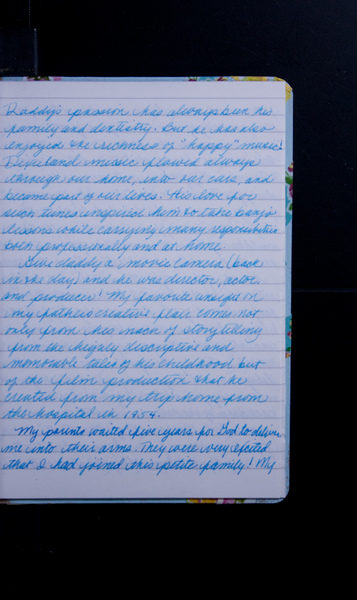 Daddy's passion has always been his
family and dentistry. But he has also
enjoyed the richness of "happy" music!
Dixieland music flowed always
through our home, into our ears, and
became part of our lives. His love for
such tunes inspired him to take banjo
lessons while carrying many responsibilities
both professionally and at home.
Give daddy a movie camera (back
in the day) and he was director, actor
and producer! My favorite insight on
my fathers creative flair comes not
only from his knack of storytelling
from the highly descriptive and
memorable tales of his childhood but
of the film production that he
created from my trip home from
the hospital in 1954.
My parents waited five years for God to deliver
me into their arms. They were very excited
that I had joined this petite family! My